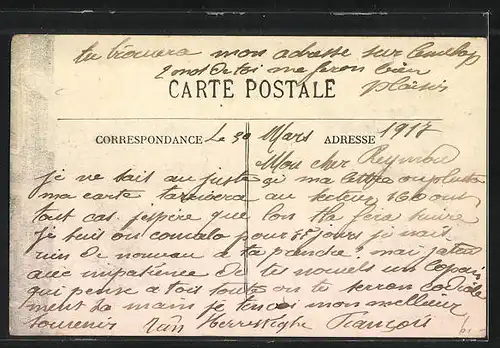 tu trouvera mon adresse sur lenvelop
2 mot de toi me feron bien
plaisir
CARTE POSTALE
CORRESPONDANCE Le 30 Mars ADRESSE 1917
Mon cher Reymond
je ne sait au juste si ma lettre ou plutot
ma carte tarrivera au secteur 160 en
tout cas jespére que lon ta fera suivre
je suit en convalo pour 35 jours je nait
rien de nouveau a ta prendre mai jatent
avec impatience de tes nouvels un copain
qui pense a toit toute en te serron cordiale
ment la main je tenvoi mon meilleur
souvenir Van Herreseghe François